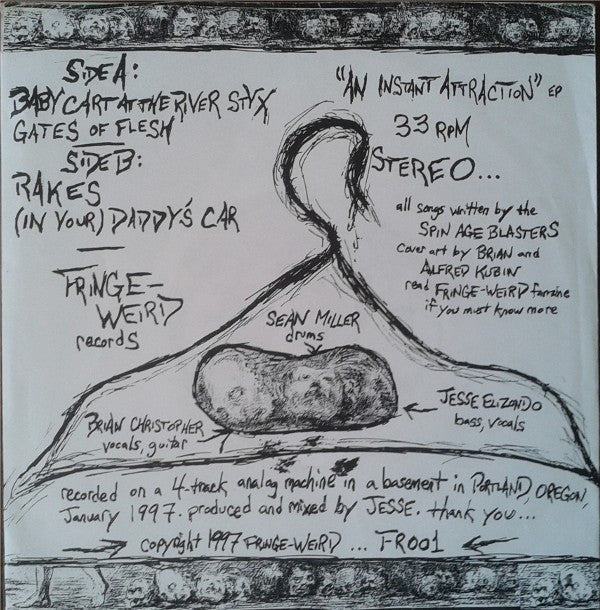 SIDE A:
BABY CART AT THE RIVER STYX
GATES OF FLESH
SIDE B:
RAKES
(IN YOUR) DADDY'S CAR
FRINGE-
WEIRD
records
"AN INSTANT ATTRACTION" EP
33 RPM
STEREO...
all songs written by the
SPIN AGE BLASTERS
cover art by BRIAN and
ALFRED KUBIN
read FRINGE-WEIRD fanzine
if you must know more
SEAN MILLER
drums
JESSE ELIZONDO
bass, vocals
BRIAN CHRISTOPHER
vocals, guitar
recorded on a 4-track analog machine in a basement in PORTLAND, OREGON,
January 1997. produced and mixed by JESSE. thank you...
copyright 1997 FRINGE-WEIRD ... T-R001